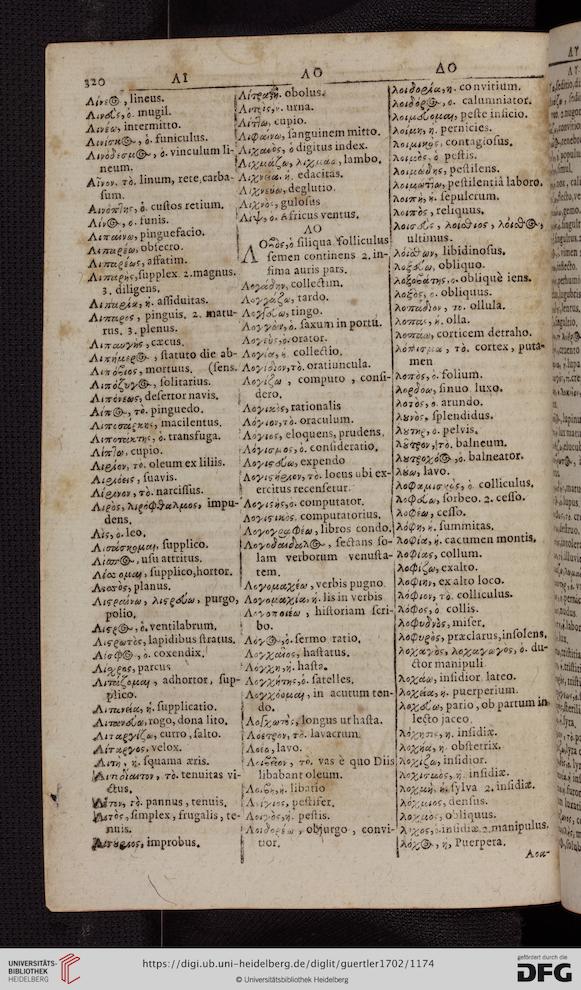 320 ΛΙ ΛΟ ΛΟ
Λίνεος, lineus.
Λινεὺς, ὁ. mugil.
Λινέω, intermitto.
Λινίσκος, ὁ. funiculus.
Λινόδεσμος, ὁ. vinculum li-
neum.
Λίνον. τὸ. linum, rete, carba-
sum.
Λινόπτης, ὁ. custos retium.
Λίνος, ο. funis.
Λιπαίνω, pinguefacio.
Λιπαρέω, obsecro.
Λιπαρέως, affatim.
Λιπαρὴς, supplex 2. magnus.
3. diligens.
Λιπαρία, ἡ. assiduitas.
Λιπαρος, pinguis, 2. matu-
rus. 3. plenus.
Λιπαυγὴς, cæcus.
Λιπήμερος, statuto die ab-
(sens.
mortuus.
Λιπόζυγος, solitarius.
Λιπόνεως, desertor navis.
Λίπος, τὸ. pinguedo.
Λιποσαρκὴς, macilentus.
Λιποτάκτης, ὁ. transfuga.
Λίπτω, cupio.
Λίριον, τὸ. oleum ex liliis.
Λιρόεις, suavis.
Λίρινον, τὸ. narcissus.
Λιρὸς, λιρόφθαλμος, impu-
dens.
Λὶς, ο. leo.
supplico.
usu attritus.
Λίσσομαι, supplico, hortor.
Λισσὸς, planus.
Λιστραίνω, λιστρεύω, purgo,
polio.
Λίστρος, ὁ. ventilabrum.
Λιστρωτὸς, lapidibus stratus.
Λίσφος, ὁ. coxendix.
Λίσχρος, parcus
Λιτάζομαι, adhortor, sup-
plico.
Λιτανεία, ἡ. supplicatio.
Λιτανεύω, rogo, dona lito.
Λιταργίζω, curro, salto.
Λίταργος, velox.
Λίτη, ἡ. squama æris.
τὸ. tenuitas vi-
ctus.
Λῖτον, τὸ. pannus, tenuis.
Λιτὸς, simplex, frugalis, te-
nuis.
improbus.
obolus.
urna.
cupio.
Λιφαίνω, sanguinem mitto.
Λιχανὸς, ὁ digitus index.
Λιχμάζω, λιχμάω, lambo.
Λιχνεία. ἡ. edacitas.
Λιχνεύω, deglutio.
Λίχνος, gulosus
Λὶψ, ο. Africus ventus.
ΛΟ
Λοβὸς, ὁ siliqua. folliculus
semen continens 2. in-
fima auris pars.
Λογάδην, collectim.
Λογγάζω, tardo.
Λογγεύω, tingo.
ὁ. saxum in portu.
Λογεὺς, ο. orator.
Λογία, ἡ. collectio.
Λογίδιον, τὸ. oratiuncula.
Λογίζω, computo, consi-
dero.
Λογικὸς, rationalis
Λόγιον, τὸ. oraculum.
Λόγιος, eloquens, prudens.
Λογισμος, ὁ. consideratio.
Λογιστεύω, expendo
Λογιστήριον, τὸ. locus ubi ex-
ercitus recensetur.
Λογιστὴς, ο. computator.
Λογιστικὸς, computatorius.
Λογογραφέω, libros condo.
Λογοδαίδαλος, sectans so-
lam verborum venusta-
tem.
Λογομαχέω, verbis pugno.
Λογομαχία, ἡ. lis in verbis
Λογοποιέω, historiam scri-
bo.
Λόγος, ὁ. sermo, ratio.
Λογχαῖος, hastatus.
Λόγχη, ἡ. hasta.
Λογχήτης, ὁ. satelles.
Λογχόομαι, in acutum ten-
do.
Λογχωτὸς, longus ut hasta.
Λόετρον, τὸ. lavacrum.
Λοέω, lavo.
τὸ. vas è quo Diis
libabant oleum.
Λοιβὴ, ἡ. libatio
Λοίγιος, pestifer.
Λοιγὸς, ἡ. pestis.
Λοιδορέω, objurgo, convi-
tior.
λοιδορία, η. convitium.
λοίδορος, ο. calumniator.
λοιμεύομαι, peste inficio.
λοίμη, ἡ. pernicies.
contagiosus.
λοιμὸς, ὁ pestis.
λοιμώδης, pestilens.
λοιμώττω, pestilentiâ laboro.
λοιπὴ, ἡ. sepulcrum.
λοιπὸς, reliquus.
λοισθεὺς, λοίσθιος, λοῖσθος,
ultimus.
libidinosus.
λοξεύω, obliquo.
λοξοβάτης, ο. obliquè iens.
λοξὸς, ο. obliquus.
λοπάδιον, τὸ. ollula.
λοπὰς, ἡ. olla.
λοπάω, corticem detraho.
λόπισμα, τὸ. cortex, puta-
men
λοπὸς, ὁ. folium.
λορδόω, sinuo luxo.
λοτὸς, ο. arundo.
splendidus.
λυτὴρ, ο. pelvis.
λȣτρὸν, τὸ. balneum.
λȣτροχόος, ὁ. balneator.
λȣω, lavo.
ὁ. colliculus.
sorbeo. 2. cesso.
λοφέω, cesso.
λόφη, ἡ. summitas.
λοφία, ἡ. cacumen montis.
λοφίας, collum.
λοφίζω, exalto.
λοφιὴν, ex alto loco.
λόφιον, τὸ. colliculus.
λόφος, ὁ collis.
miser.
præclarus, insolens,
λοχαγὸς, λοχαγωγὸς, ὁ. du-
ctor manipuli
λοχάω, insidior, lateo.
λοχεία, ἡ. puerperium.
λοχεύω, pario, ob partum in
lecto jaceo.
λόχησις, η. insidiæ.
λοχία, η. obstetrix.
λοχίζω, insidior.
λοχισμὸς, ἡ. insidiæ.
λόχμη, ἡ. sylva 2. insidiæ.
λόχμιος, densus.
λοχμὸς, obliquus.
λόχος, ὁ. insidiæ. 2. manipulus.
λόχος, ἡ, Puerpera.
Λου-
UNIVERSITÄTS-
BIBLIOTHEK
HEIDELBERG
https://digi.ub.uni-heidelberg.de/diglit/guertler1702/1174
© Universitätsbibliothek Heidelberg
gefördert durch die
DFG